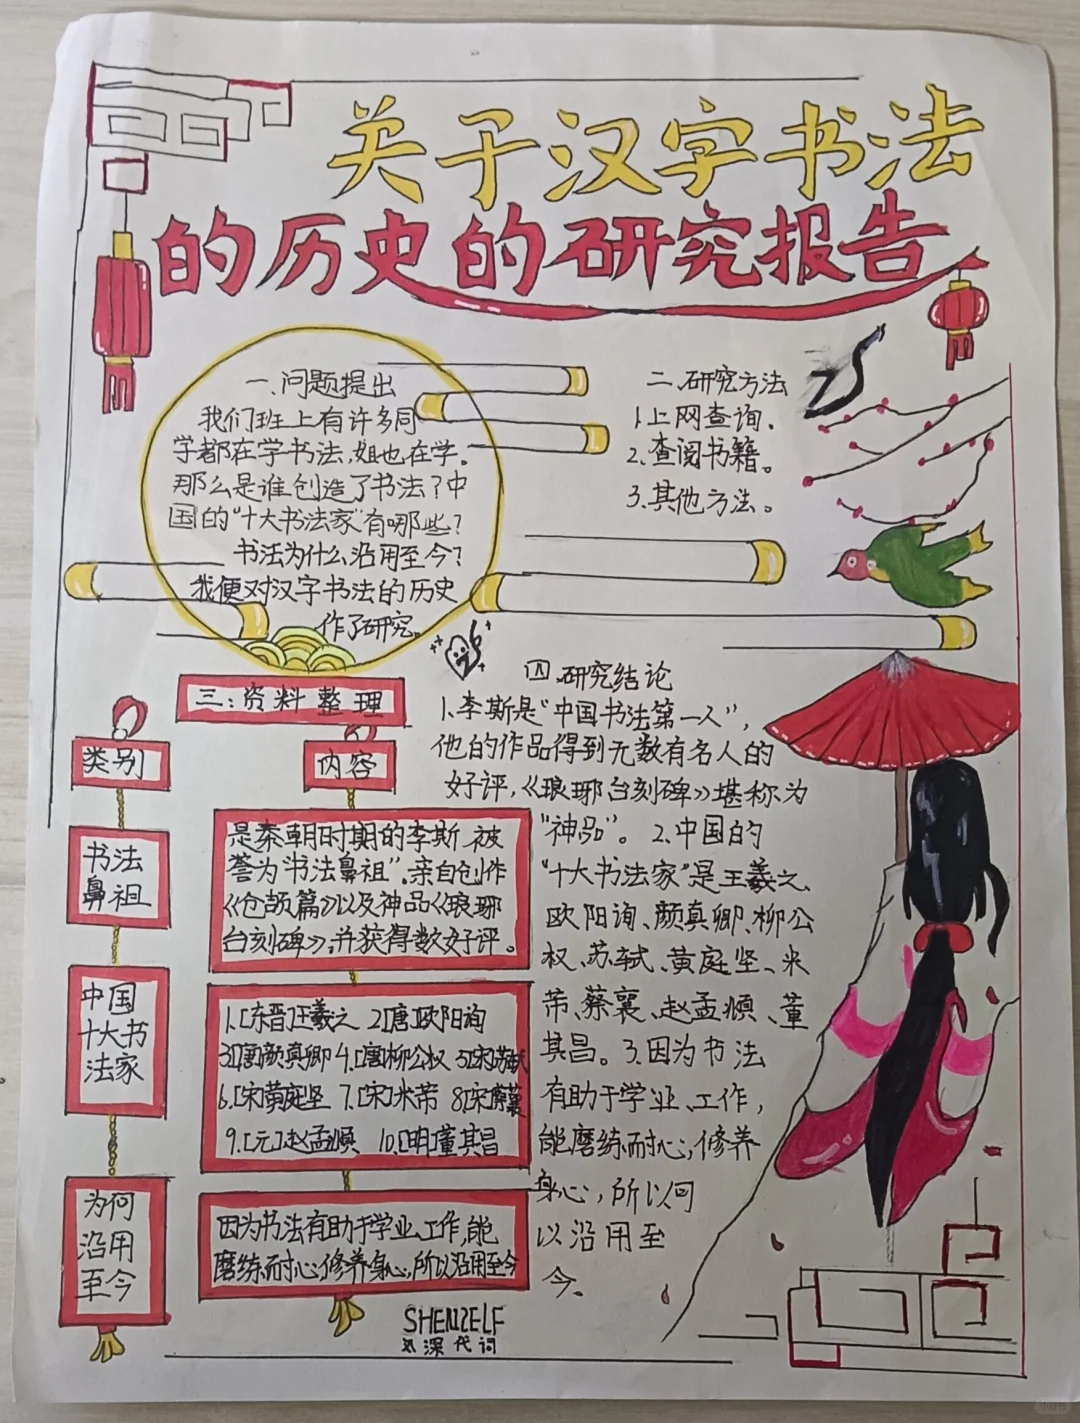 关于汉字书法
的历史的研究报告
一.问题提出
我们班上有许多同
学都在学书法,姐也在学。
那么是谁创造了书法?中
国的"十大书法家"有哪些?
书法为什么沿用至今?
我便对汉字书法的历史
作了研究。
二.研究方法
1.上网查询.
2.查阅书籍。
3.其他方法。
三:资料整理
类别
内容
书法
鼻祖
是秦朝时期的李斯,被
誉为"书法鼻祖".亲自创作
《仓颉篇》以及神品《琅琊
台刻碑》,并获得数好评。
中国
十大书
法家
1.[东晋]王羲之 2.[唐]欧阳询
3.[唐]颜真卿 4.[唐]柳公权 5.[宋]苏轼
6.[宋]黄庭坚 7.[宋]米芾 8.[宋]蔡襄
9.[元]赵孟頫 10.[明]董其昌
为何
沿用
至今
因为书法有助于学业、工作,能
磨练耐心,修养身心,所以沿用至今
四.研究结论
1.李斯是"中国书法第一人",
他的作品得到无数有名人的
好评,《琅琊台刻碑》堪称为
"神品"。2.中国的
"十大书法家"是王羲之、
欧阳询、颜真卿、柳公
权、苏轼、黄庭坚、米
芾、蔡襄、赵孟頫、董
其昌。3.因为书法
有助于学业、工作,
能磨练耐心,修养
身心,所以可
以沿用至
今。